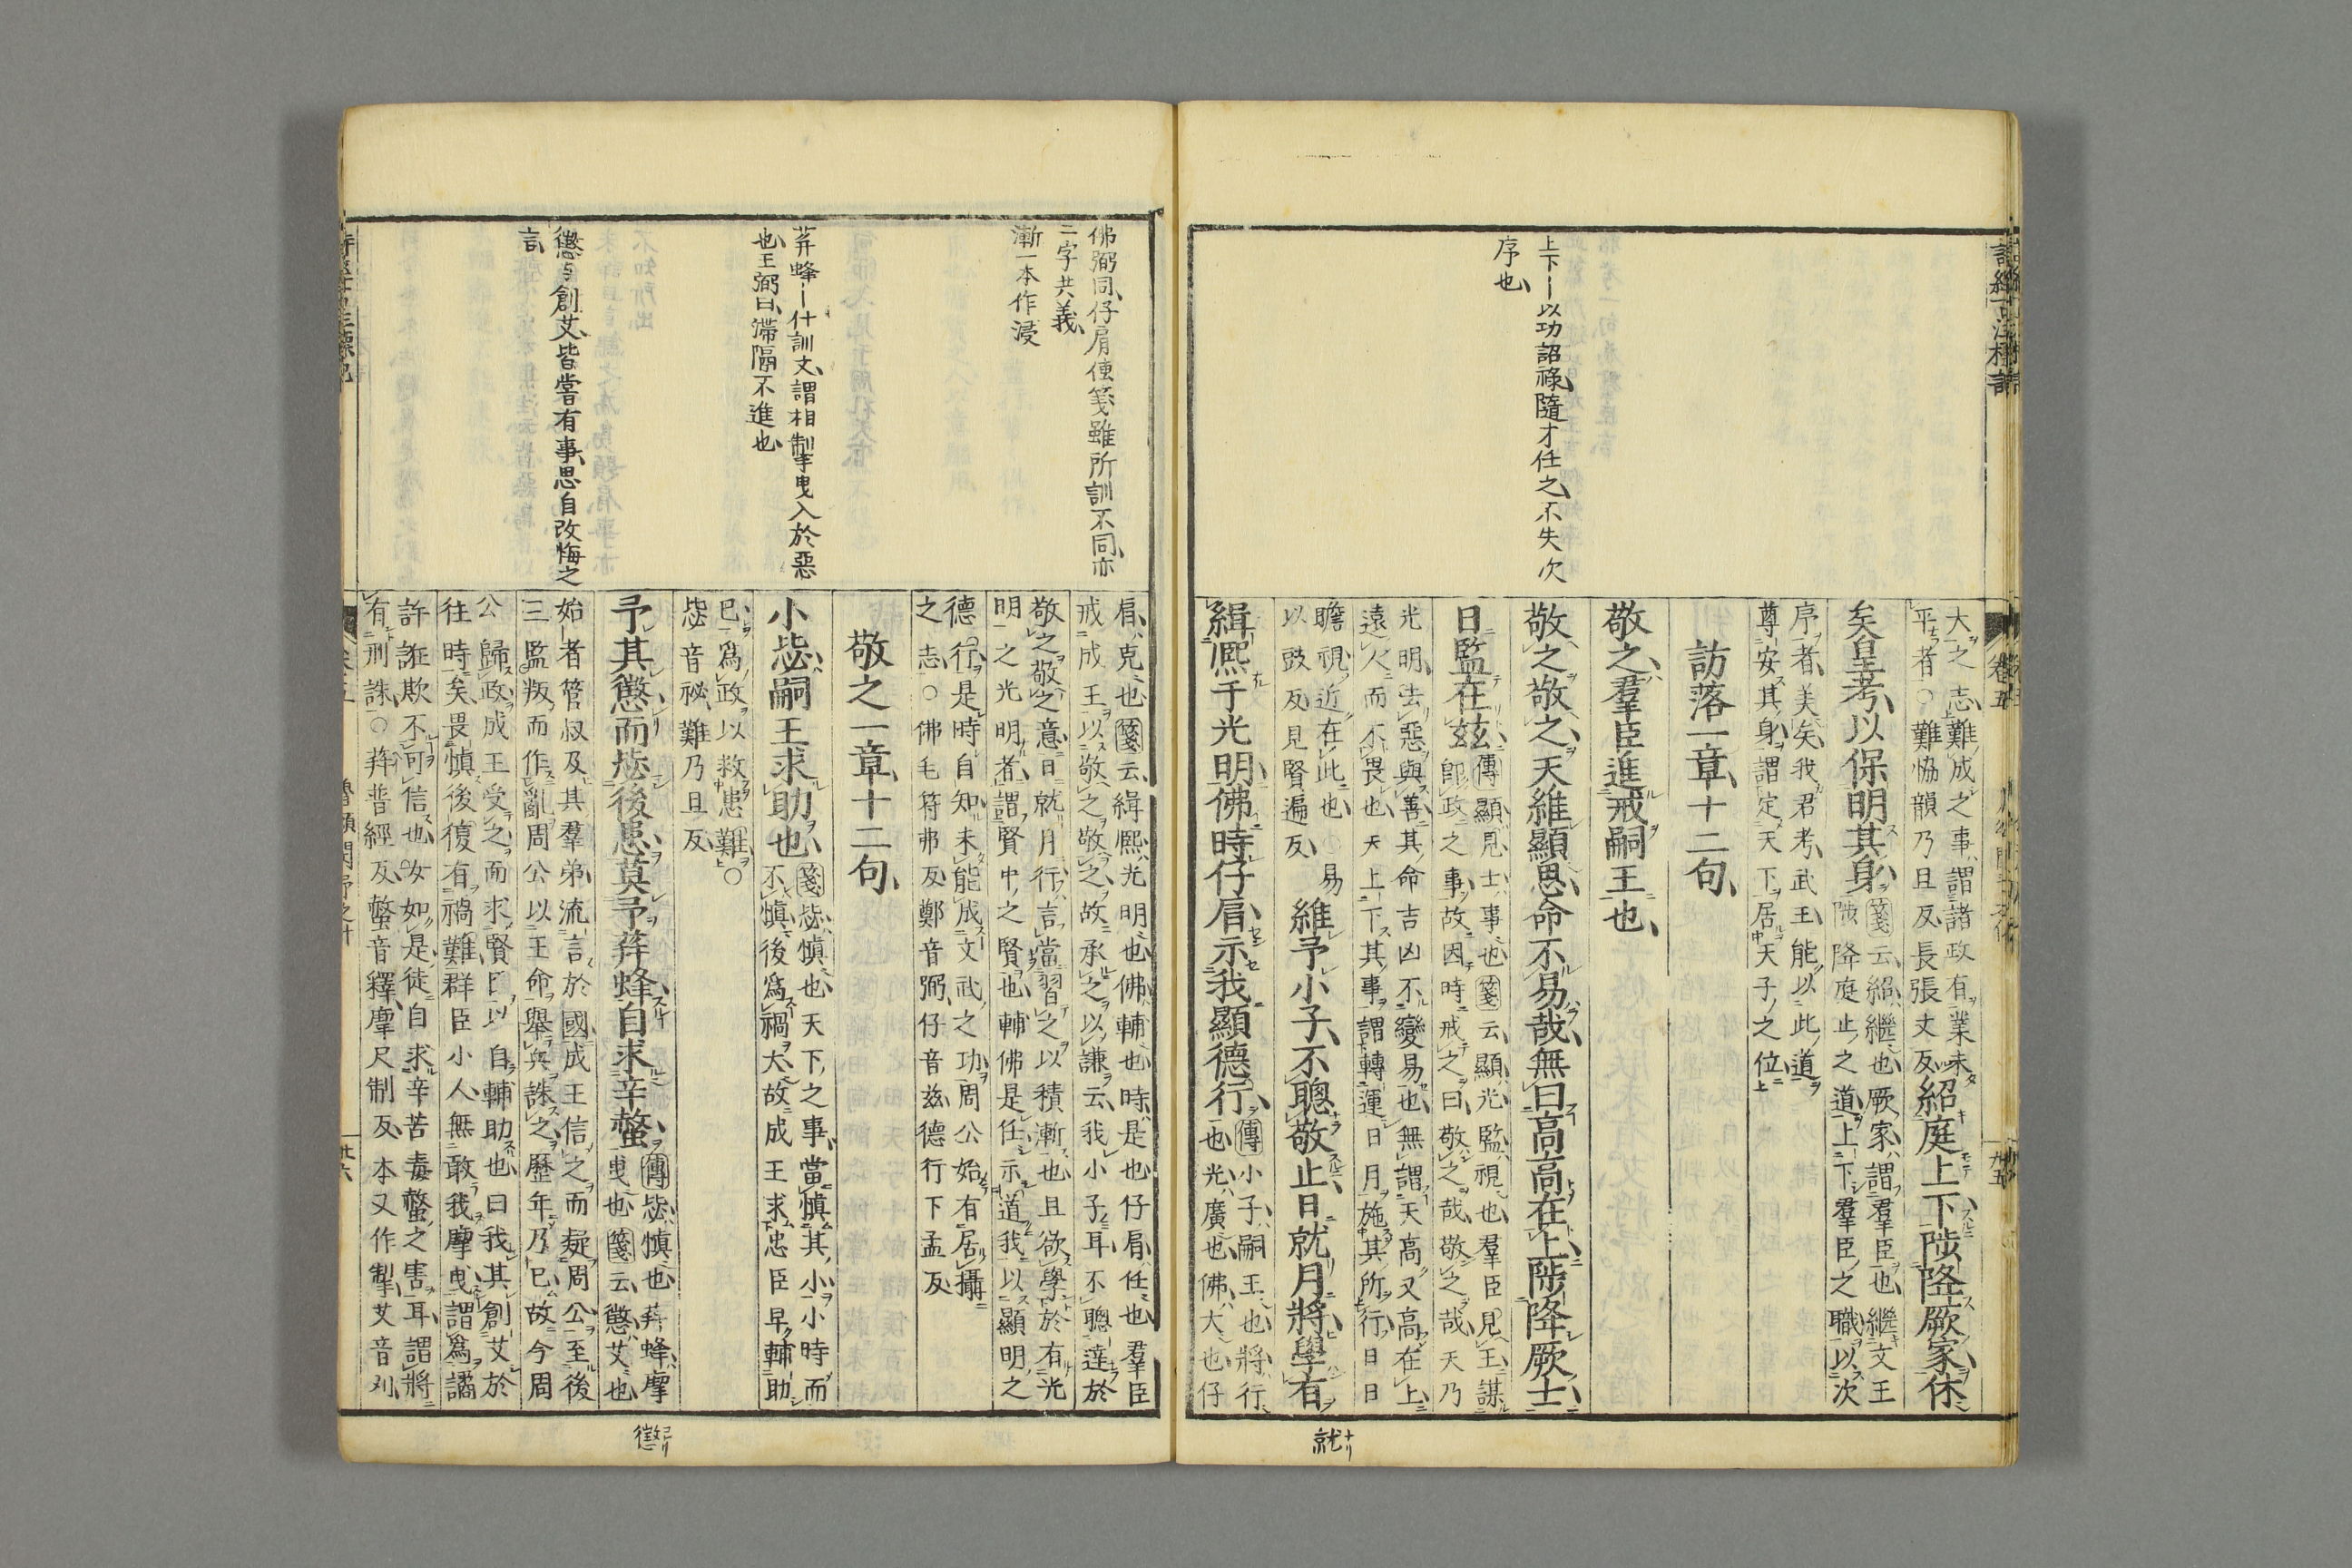 上下ー以功詔祿、隨才任之、不失次
序也、
大之志、難成之事、謂諸政有業未
平者○難協韻乃旦反長張丈反紹庭上下、陟降厥家、休
矣皇考、以保明其身、箋云紹、繼也厥家、謂羣臣也繼文王
陟降庭止之道、上下羣臣之職以次
序者、美矣我君考、武王能以此道
尊安其身、謂定天下、居天子之位
訪落一章、十二句、
敬之、羣臣進戒嗣王也、
敬之敬之、天維顯思、命不易哉、無曰高高在上、陟降厥士、
日監在兹、傳顯、見、士、事也箋云顯、光監、視也羣臣見王謀
卽政之事、故因時戒之曰、敬之哉、敬之哉、天乃
光明、去惡與善、其命吉凶不變易也無謂天高又高在上、
遠人而不畏也天上下其事、謂轉運日月、施其所行、日日
瞻視、近在此也○易
以豉反見賢遍反、維予小子、不聰敬止、日就月將、學有
緝熈于光明、佛時仔肩、示我顯德行、傳小子、嗣王也將、行
也光、廣也佛、大也仔
就
卷五
佛弼同、仔肩傳箋雖所訓不同、亦
二字共義、
漸一本作浸
荓蜂ー什訓文、謂相掣曳入於惡
也、王弼曰、滯隔不進也、
懲与創艾、皆嘗有事、思自改悔之
言、
肩、克也箋云、緝熈、光明也佛、輔也時、是也仔肩、任也羣臣
戒成王以敬之敬之、故承之以謙云、我小子耳、不聰達於
敬之敬之意、日就月行、言當習之以積漸也且欲學於有光
明之光明者、謂賢中之賢也輔佛是任、示道我以顯明之
德行、是時自知未能成文武之功、周公始有居攝
之志、○佛毛符弗反鄭音弼、仔音兹、德行下孟反
敬之一章、十二句、
小毖、嗣王求助也、箋毖、慎也天下之事、當慎其小、小時而
不慎、後爲禍大、故成王求忠臣早輔助
已爲政、以救患難、○
毖音祕、難乃旦反、
予其懲而毖後患、莫予荓蜂、自求辛螫、傳毖、慎也荓蜂、摩
曳也箋云懲、艾也
始者管叔及其羣弟流言於國、成王信之而疑周公、至後
三監叛而作亂、周公以王命舉兵誅之、歷年乃已、故今周
公歸政、成王受之而求賢臣以自輔助也曰我其創艾於
往時矣、畏慎後復有禍難群臣小人無敢我摩曳、謂爲譎
詐誑欺不可信也女如是徒自求辛苦毒螫之害耳、謂將
有刑誅、○荓普經反、螫音釋、摩尺制反、本又作掣、艾音刈、
懲